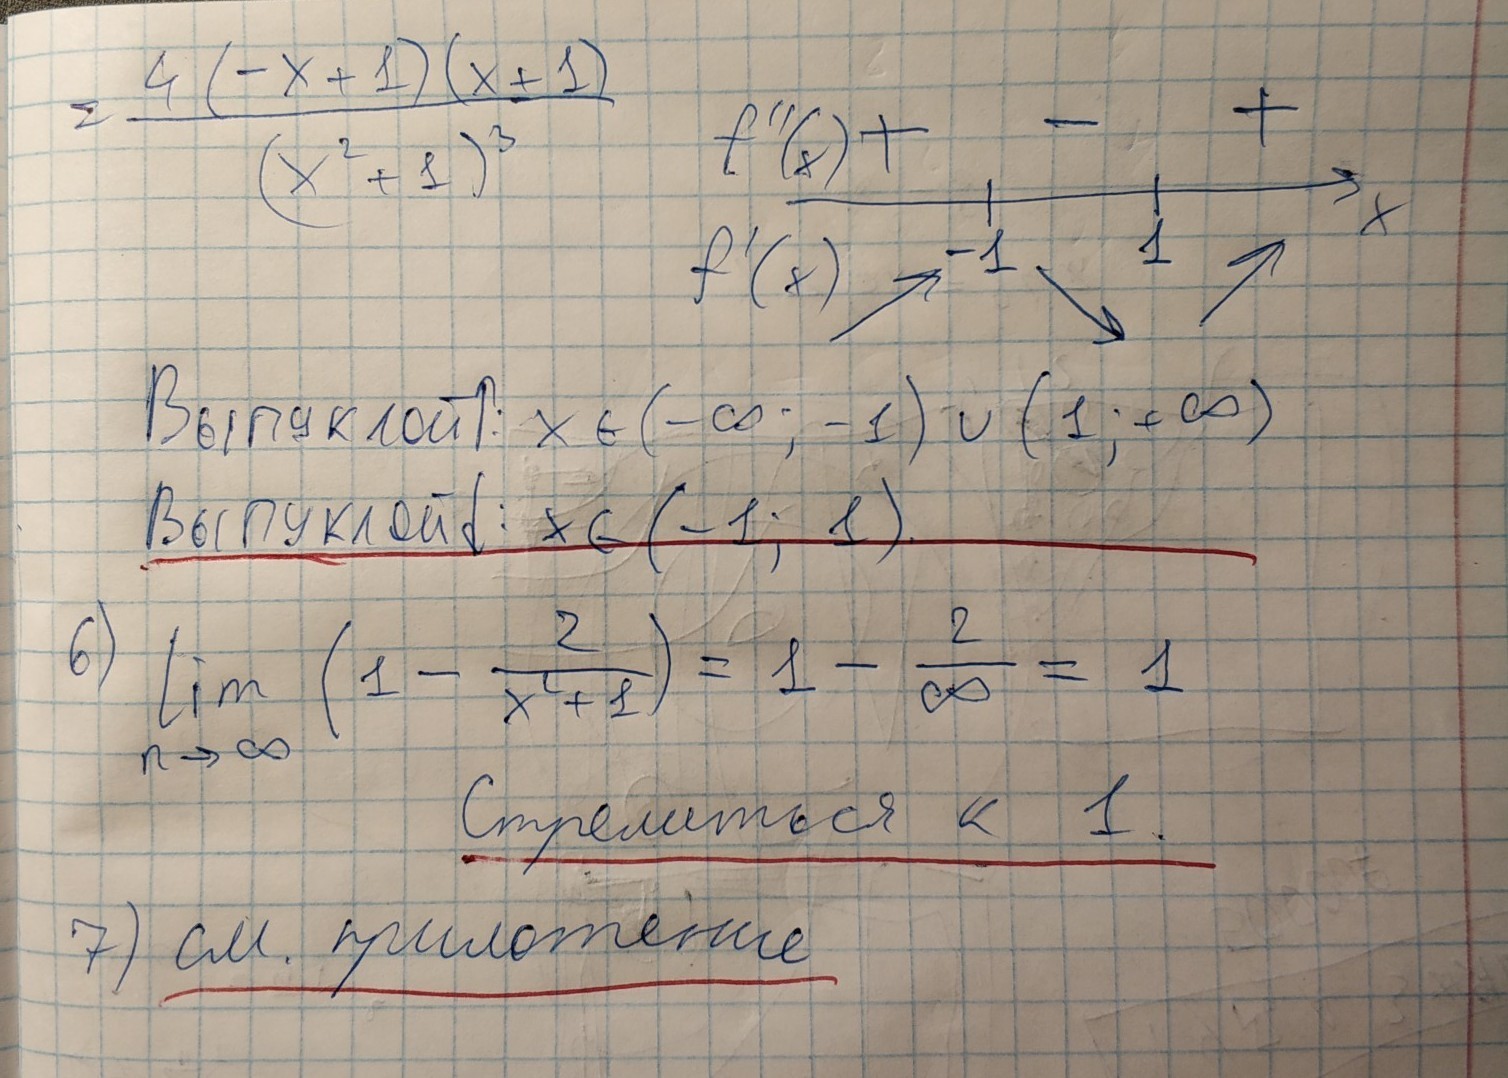 = 4(-x+1)(x+1) / (x²+1)³
f''(x) + - +
-1 1 x
f'(x) ↗ ↘ ↗
Выпуклой↑: x ∈ (-∞; -1) ∪ (1; +∞)
Выпуклой↓: x ∈ (-1; 1).
6) lim (1 - 2/(x²+1)) = 1 - 2/∞ = 1
n→∞
Стремиться к 1.
7) см. приложение